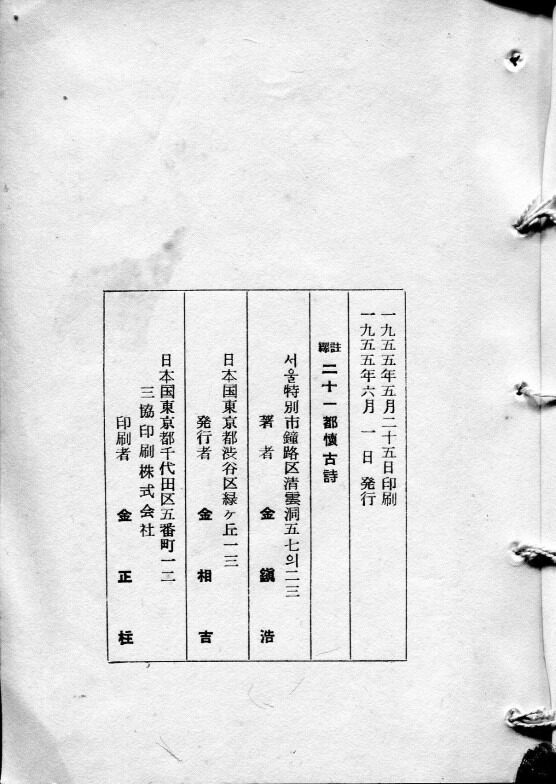 一九五五年五月二十五日印刷
一九五五年六月 一日 発行
註釋 二十一都懷古詩
서울特別市鐘路区清雲洞五七의二三
著者 金鎭浩
日本国東京都渋谷区緑ヶ丘一三
発行者 金相吉
日本国東京都千代田区五番町一二
三協印刷株式会社
印刷者 金正柱